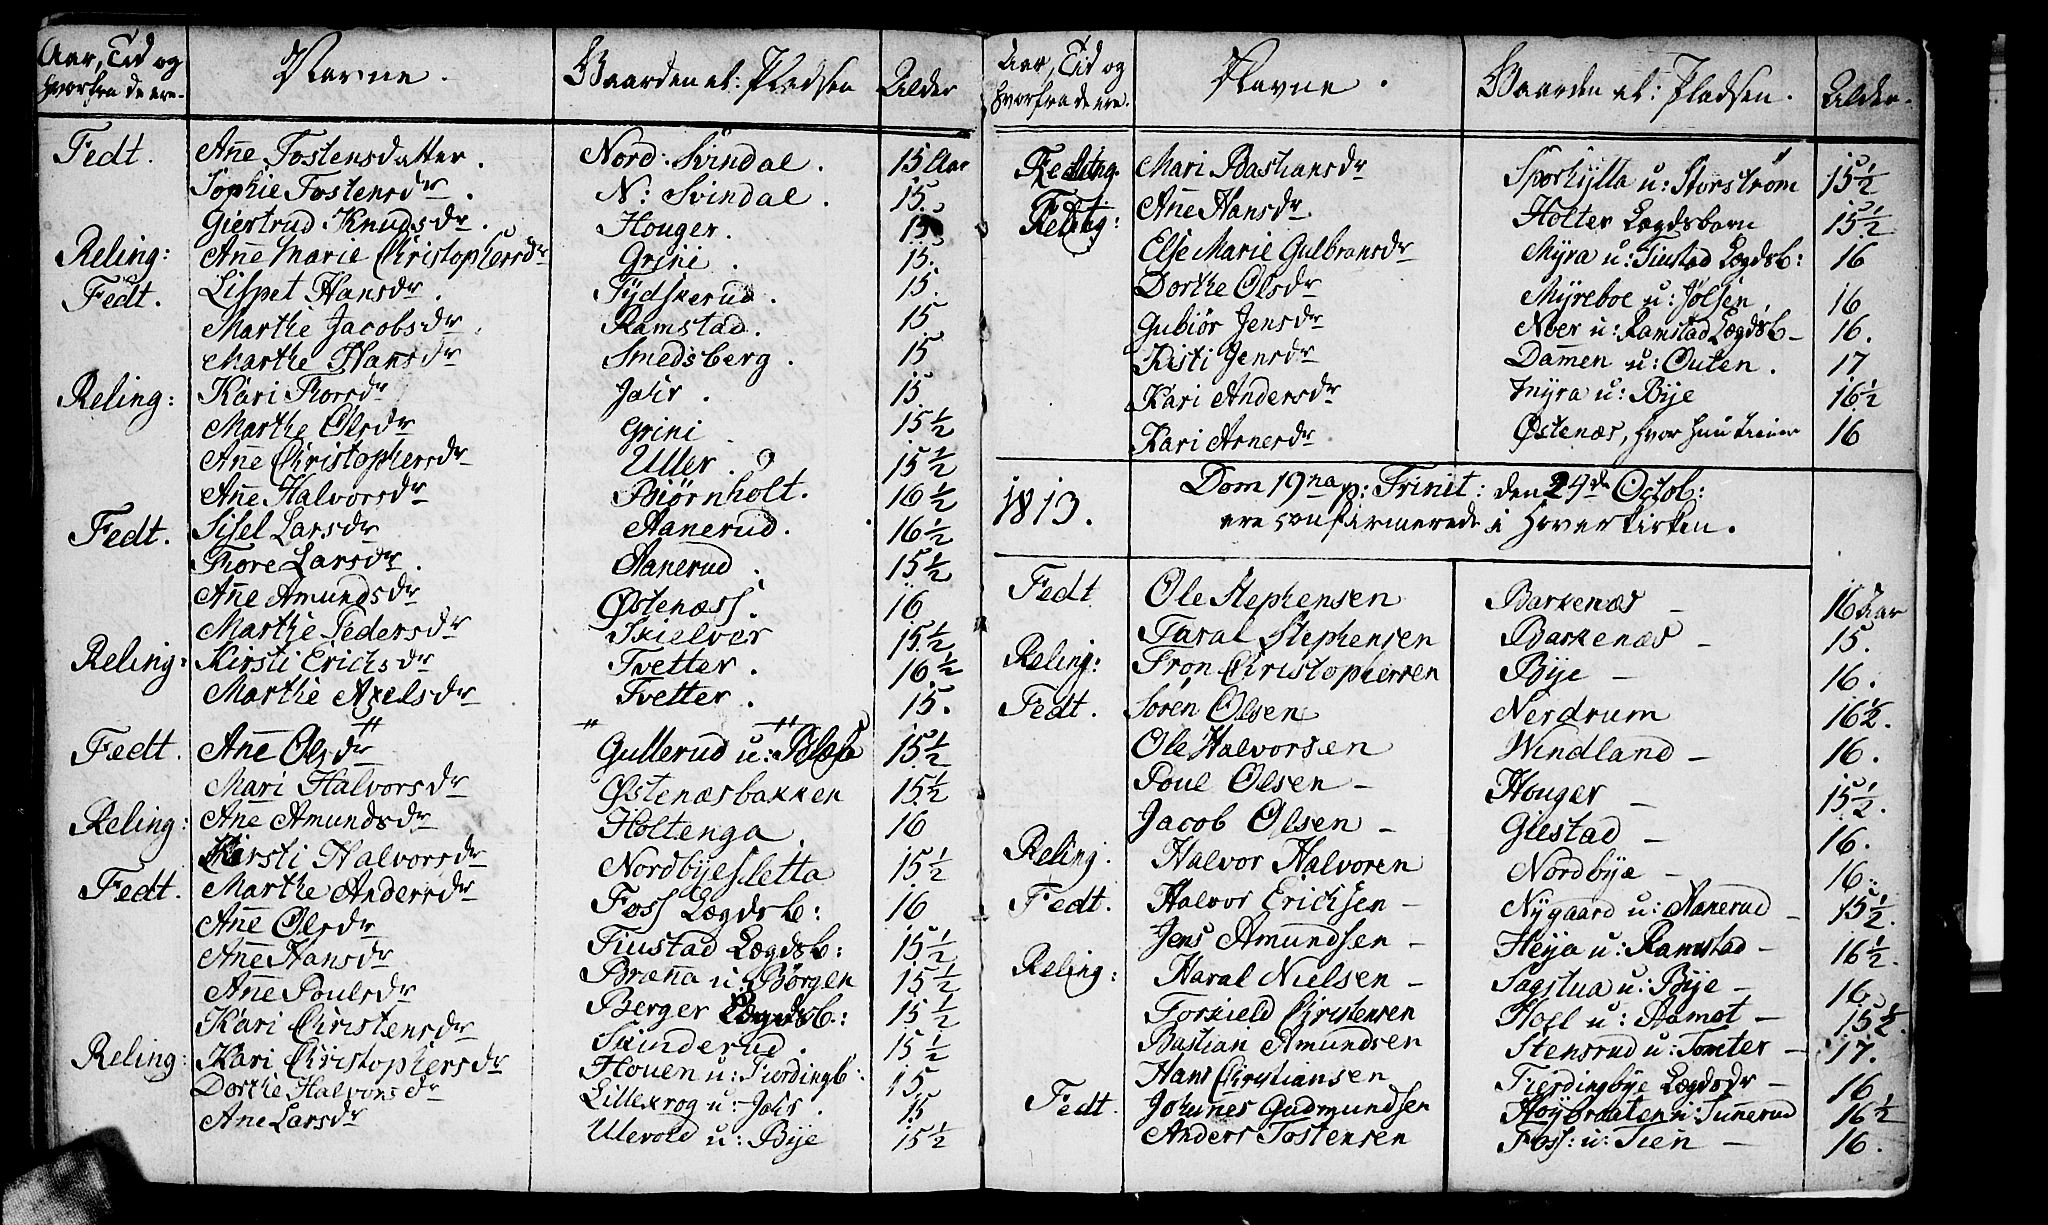 Aar, Tid og hvorfra de ere. Navne. Gaarden el: Pladsen Alder
Fedt. Añe Tostensdatter. Nord: Svindal. 15 Aar
Sophie Tostensdr. N: Svindal. 15.
Giertrud Knudsdr. Houger. 15
Reling: Añe Marie Christophersdr Grini. 15.
Fedt. Lispet Hansdr. Tydskerud. 15.
Marthe Jacobsdr. Ramstad. 15
Marthe Hansdr Smedsberg. 15
Reling: Kari Thorsdr Jahr. 15
Marthe Olsdr Grini 15½
Añe Christophersdr Uller. 15½
Añe Halvorsdr Biörnholt. 16½
Fedt. Sisel Larsdr Aanerud. 16½
Thore Larsdr. Aanerud. 15½
Añe Amundsdr Østenæss. 16
Marthe Pedersdr Skielver 15½
Reling: Kirsti Erichsdr Tvetter. 16½
Marthe Axelsdr Tvetter. 15.
Fedt. Añe Olsdr Gullerud u: 15½
Mari Halvorsdr Østenæsbakken 15½
Reling: Añe Amundsdr Holtenga. 16
Kirsti Halvorsdr Nordbyesletta 15½
Fedt. Marthe Andersdr Foss Lægdsb: 16
Añe Olsdr Tiustad Lægdsb: 15½
Añe Hansdr Bræña u: Börgen 15½
Añe Poulsdr Berger Lægdsb.: 15½
Kari Christensdr Skinderud. 15½
Reling: Kari Christophersdr Houen u: Fierdingb: 15
Dorthe Halvorsdr Lillekrog u: Jahr. 15
Ane Larsdr Ulevold u: Bye 15½
Aar, Tid og hvorfra de ere. Navne. Gaarden el: Pladsen. Alder.
Reling. Mari Bastiansdr Sporhylla u: Storström 15½
Reling: Añe Hansdr Holter Lægdsbarn 15½
Else Marie Gulbransdr Myra u: Tiustad Lægdsb: 16
Dorthe Olsdr Myreboe u: Jölsen 16
Gubiör Jensdr Noer u: Ramstad Lægdsb- 16.
Kisti Jensdr Dam̃en u: Outen. 17
Kari Andersdr Myra u: Bye 16½
Kari Arnesdr Østenæs, hvor hun tiener 16
1813. Dom 19na p: Trinit: den 24de Octob:
ere confirmerede i Hover kirken.
Fedt Ole Stephensen Barkenæs - 16 Aar
Taral Stephensen Barkenæs - 15.
Reling: Tron Christophersen Bye - 16.
Fedt. Sören Olsen Nerdrum 16½.
Ole Halvorsen Windland - 16.
Poul Olsen - Houger - 15½.
Jacob Olsen - Giestad - 16.
Reling. Halvor Halvoren Nordbye - 16.
Fedt. Halvor Erichsen - Nygaard u: Aanerud - 15½.
Jens Amundsen - Heya u: Ramstad - 16½.
Reling: Haral Nielsen - Sagstua u: Bye - 16.
Torkield Christensen Hoel u: Aamot - 15½.
Bastian Amundsen Stensrud u: Tomter - 17.
Hans Christiansen Fierdingbye Lægdsdr - 16
Fedt. Johanes Gudmundsen Høybraaten u: Tunerud 16½
Anders Tostensen Foss: u: Tien - 16.